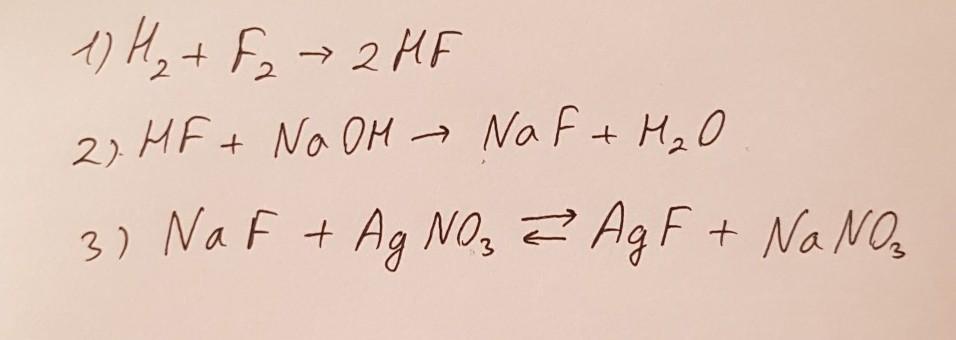 1) H₂ + F₂ → 2HF
2). HF + NaOH → NaF + H₂O
3) NaF + AgNO₃ ⇄ AgF + NaNO₃